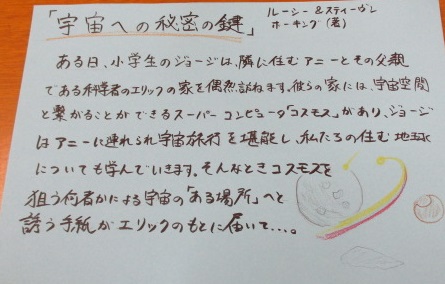 「宇宙への秘密の鍵」
ルーシー&スティーヴン
ホーキング(著)
ある日、小学生のジョージは、隣に住むアニーとその父親
である科学者のエリックの家を偶然訪ねます。彼らの家には、宇宙空間
と繋がることができるスーパーコンピュータ「コスモス」があり、ジョージ
はアニーに連れられ宇宙旅行を堪能し、私たちの住む地球
についても学んでいきます。そんなときコスモスを
狙う何者かによる宇宙の「ある場所」へと
誘う手紙がエリックのもとに届いて…。